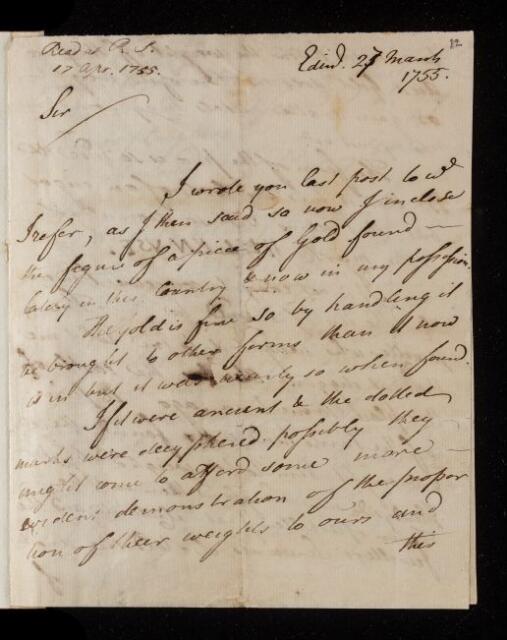 12
Read at R. S.
17 Apr. 1755.
Edinr. 27 March
1755.
Sir
I wrote you last post to wd.
I refer, as I then said so now I inclose
the figure of a piece of Gold found
lately in this Country & now in my possession.
The gold is fine so by handling it
be brought to other forms than it now
is in but it was nearly so when found.
If it were ancient & the dotted
marks were decyphered possibly they
might come to afford some more
evident demonstration of the propor
tion of their weights to ours and
this